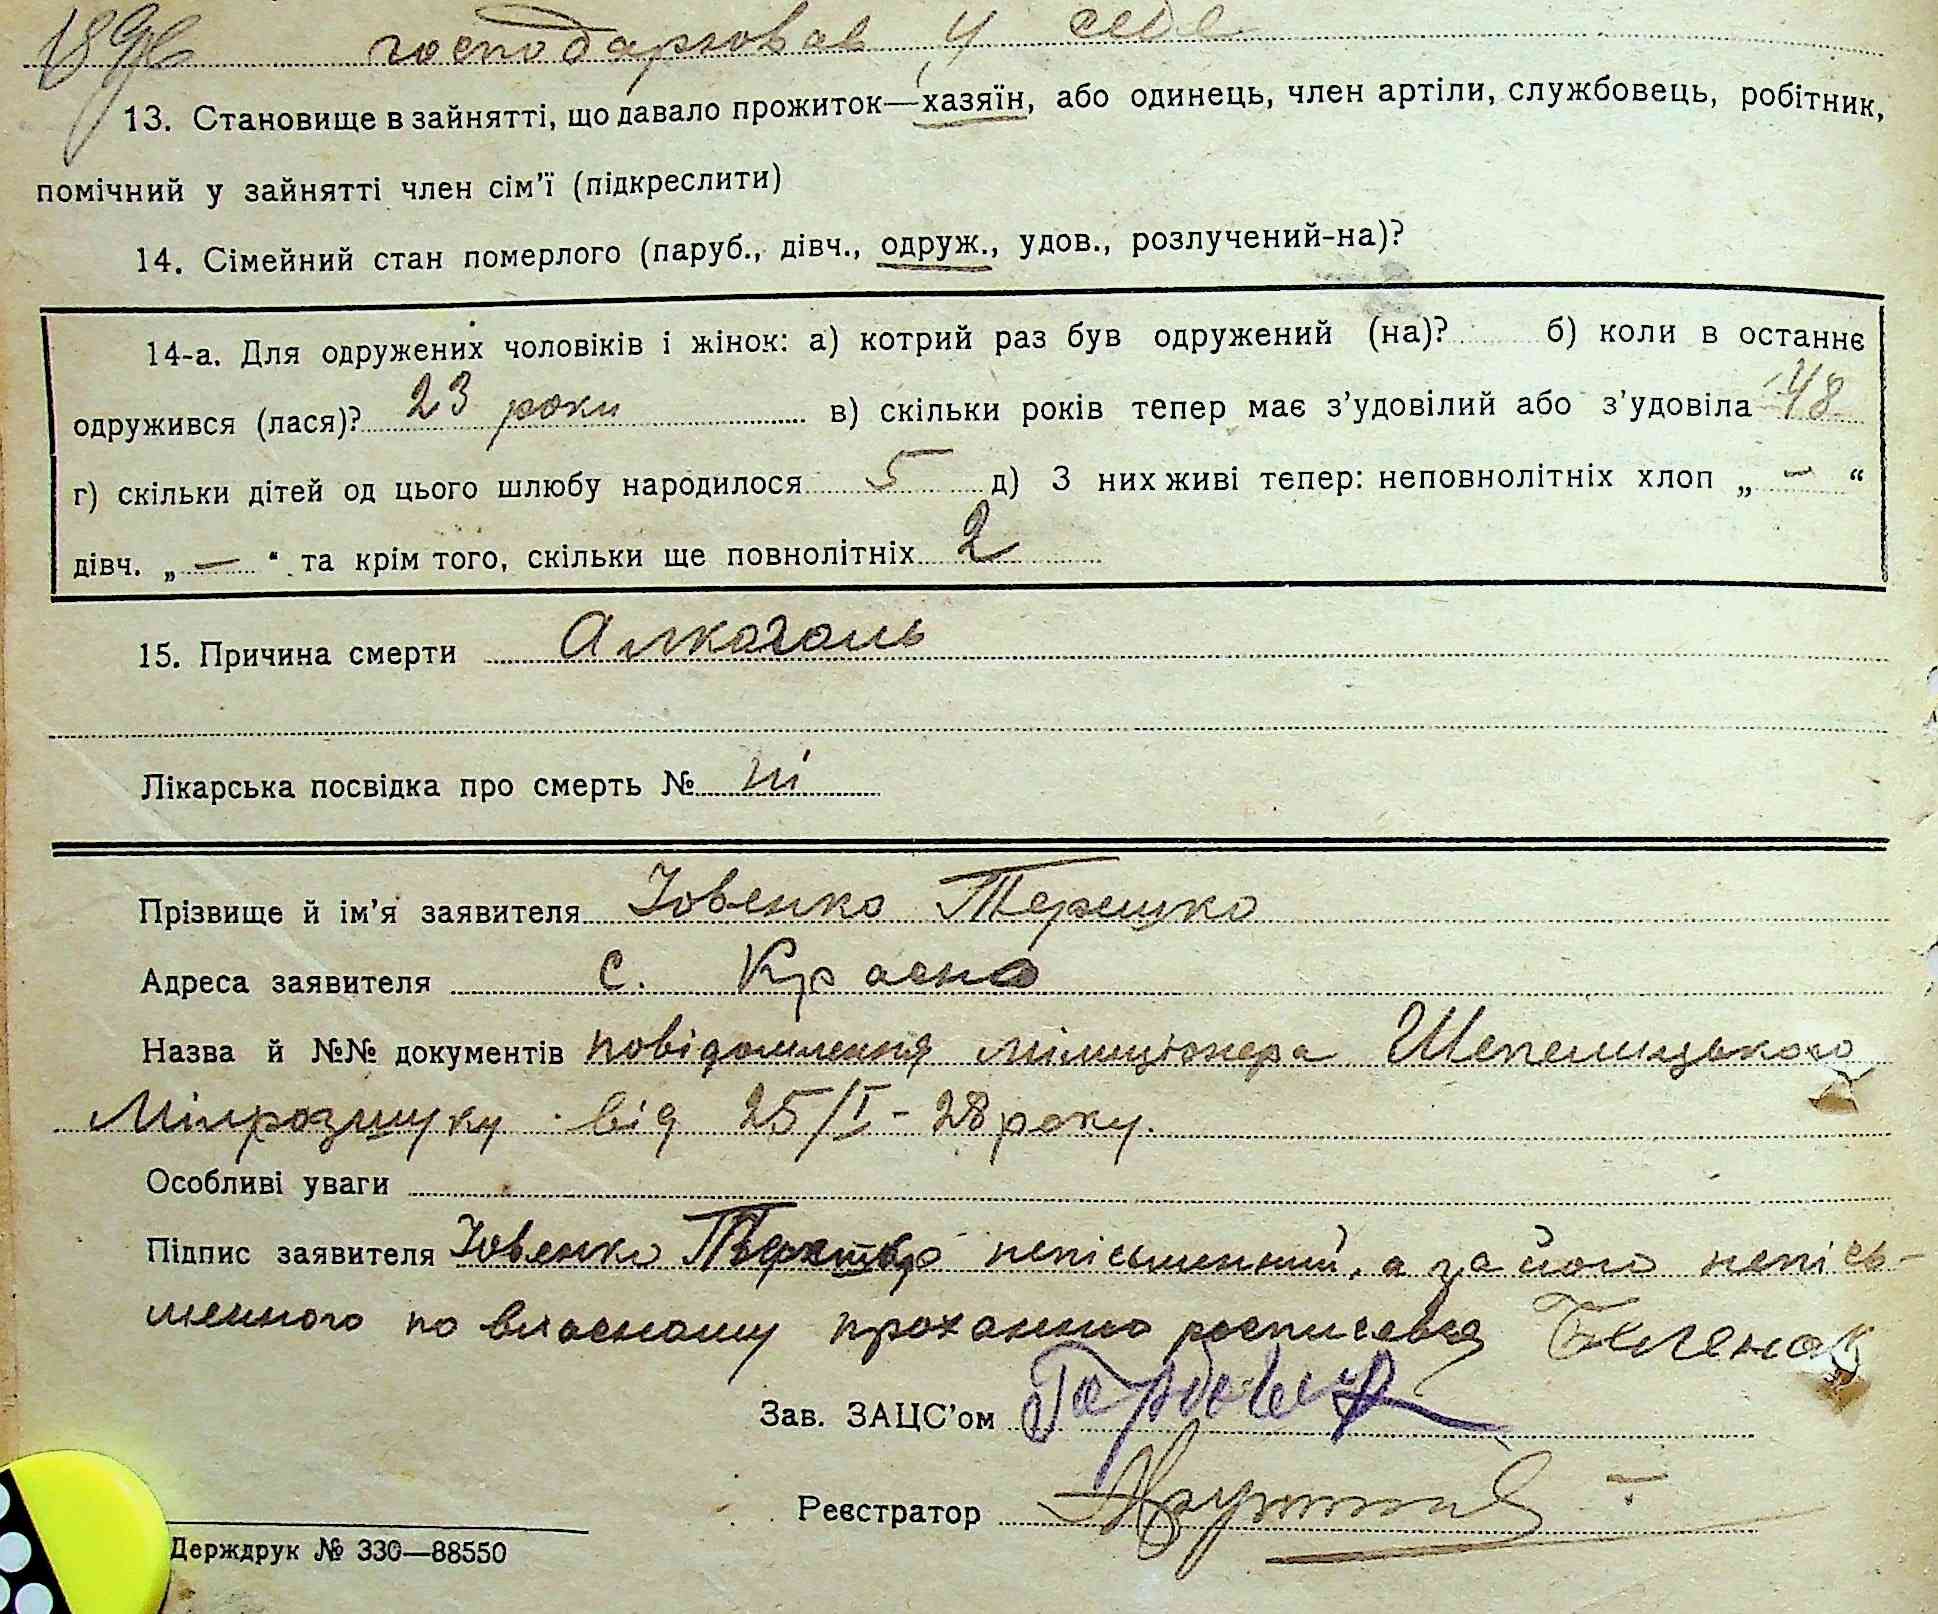 господарював у себе
13. Становище в зайнятті, що давало прожиток—хазяїн, або одинець, член артіли, службовець, робітник,
помічний у зайнятті член сім'ї (підкреслити)
14. Сімейний стан померлого (паруб., дівч., одруж., удов., розлучений-на)?
14-а. Для одружених чоловіків і жінок: а) котрий раз був одружений (на)? б) коли в останнє
одружився (лася)? 23 роки в) скільки років тепер має з'удовілий або з'удовіла 48
г) скільки дітей од цього шлюбу народилося 5 д) З них живі тепер: неповнолітніх хлоп „ — “
дівч. „ — “ та крім того, скільки ще повнолітніх 2
15. Причина смерти Алкоголь
Лікарська посвідка про смерть № ні
Прізвище й ім'я заявителя Іовенко Терешко
Адреса заявителя с. Красно
Назва й №№ документів повідомлення міліціонера Шепелицького
Мілрозшуку від 25/I - 28 року.
Особливі уваги
Підпис заявителя Іовенко непісьменний, а за його непісь-
менного по власному проханню росписався
Зав. ЗАЦС'ом
Реєстратор
Держдрук № 330—88550